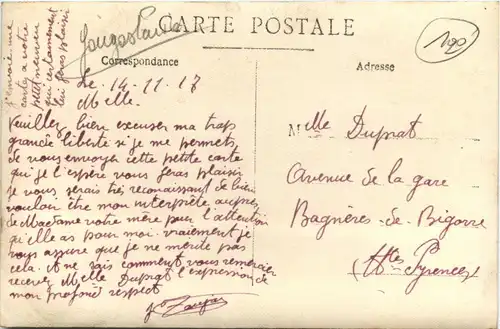 CARTE POSTALE
Correspondance
Adresse
Yougoslavie
190
j'envoie une
carte a votre
petit neveu
qui certainement
lui feras plaisir
Le 14.11.17
Melle.
Veuillez bien excuser ma trop
grande liberté si je me permets
de vous envoyer cette petite carte
qui je l'espère vous feras plaisir
je vous serais très reconaissant de bien
vouloir être mon interprète auprès
de Madame votre mère pour l'attention
qu'elle as pour moi. vraiement je
vous assure que je ne mérite pas
cela. et ne sais comment vous remercier
recevez Melle Duprat l'expression de
mon profond respect
Melle Duprat
Avenue de la gare
Bagnères-de-Bigorre
(Htes Pyrenées)